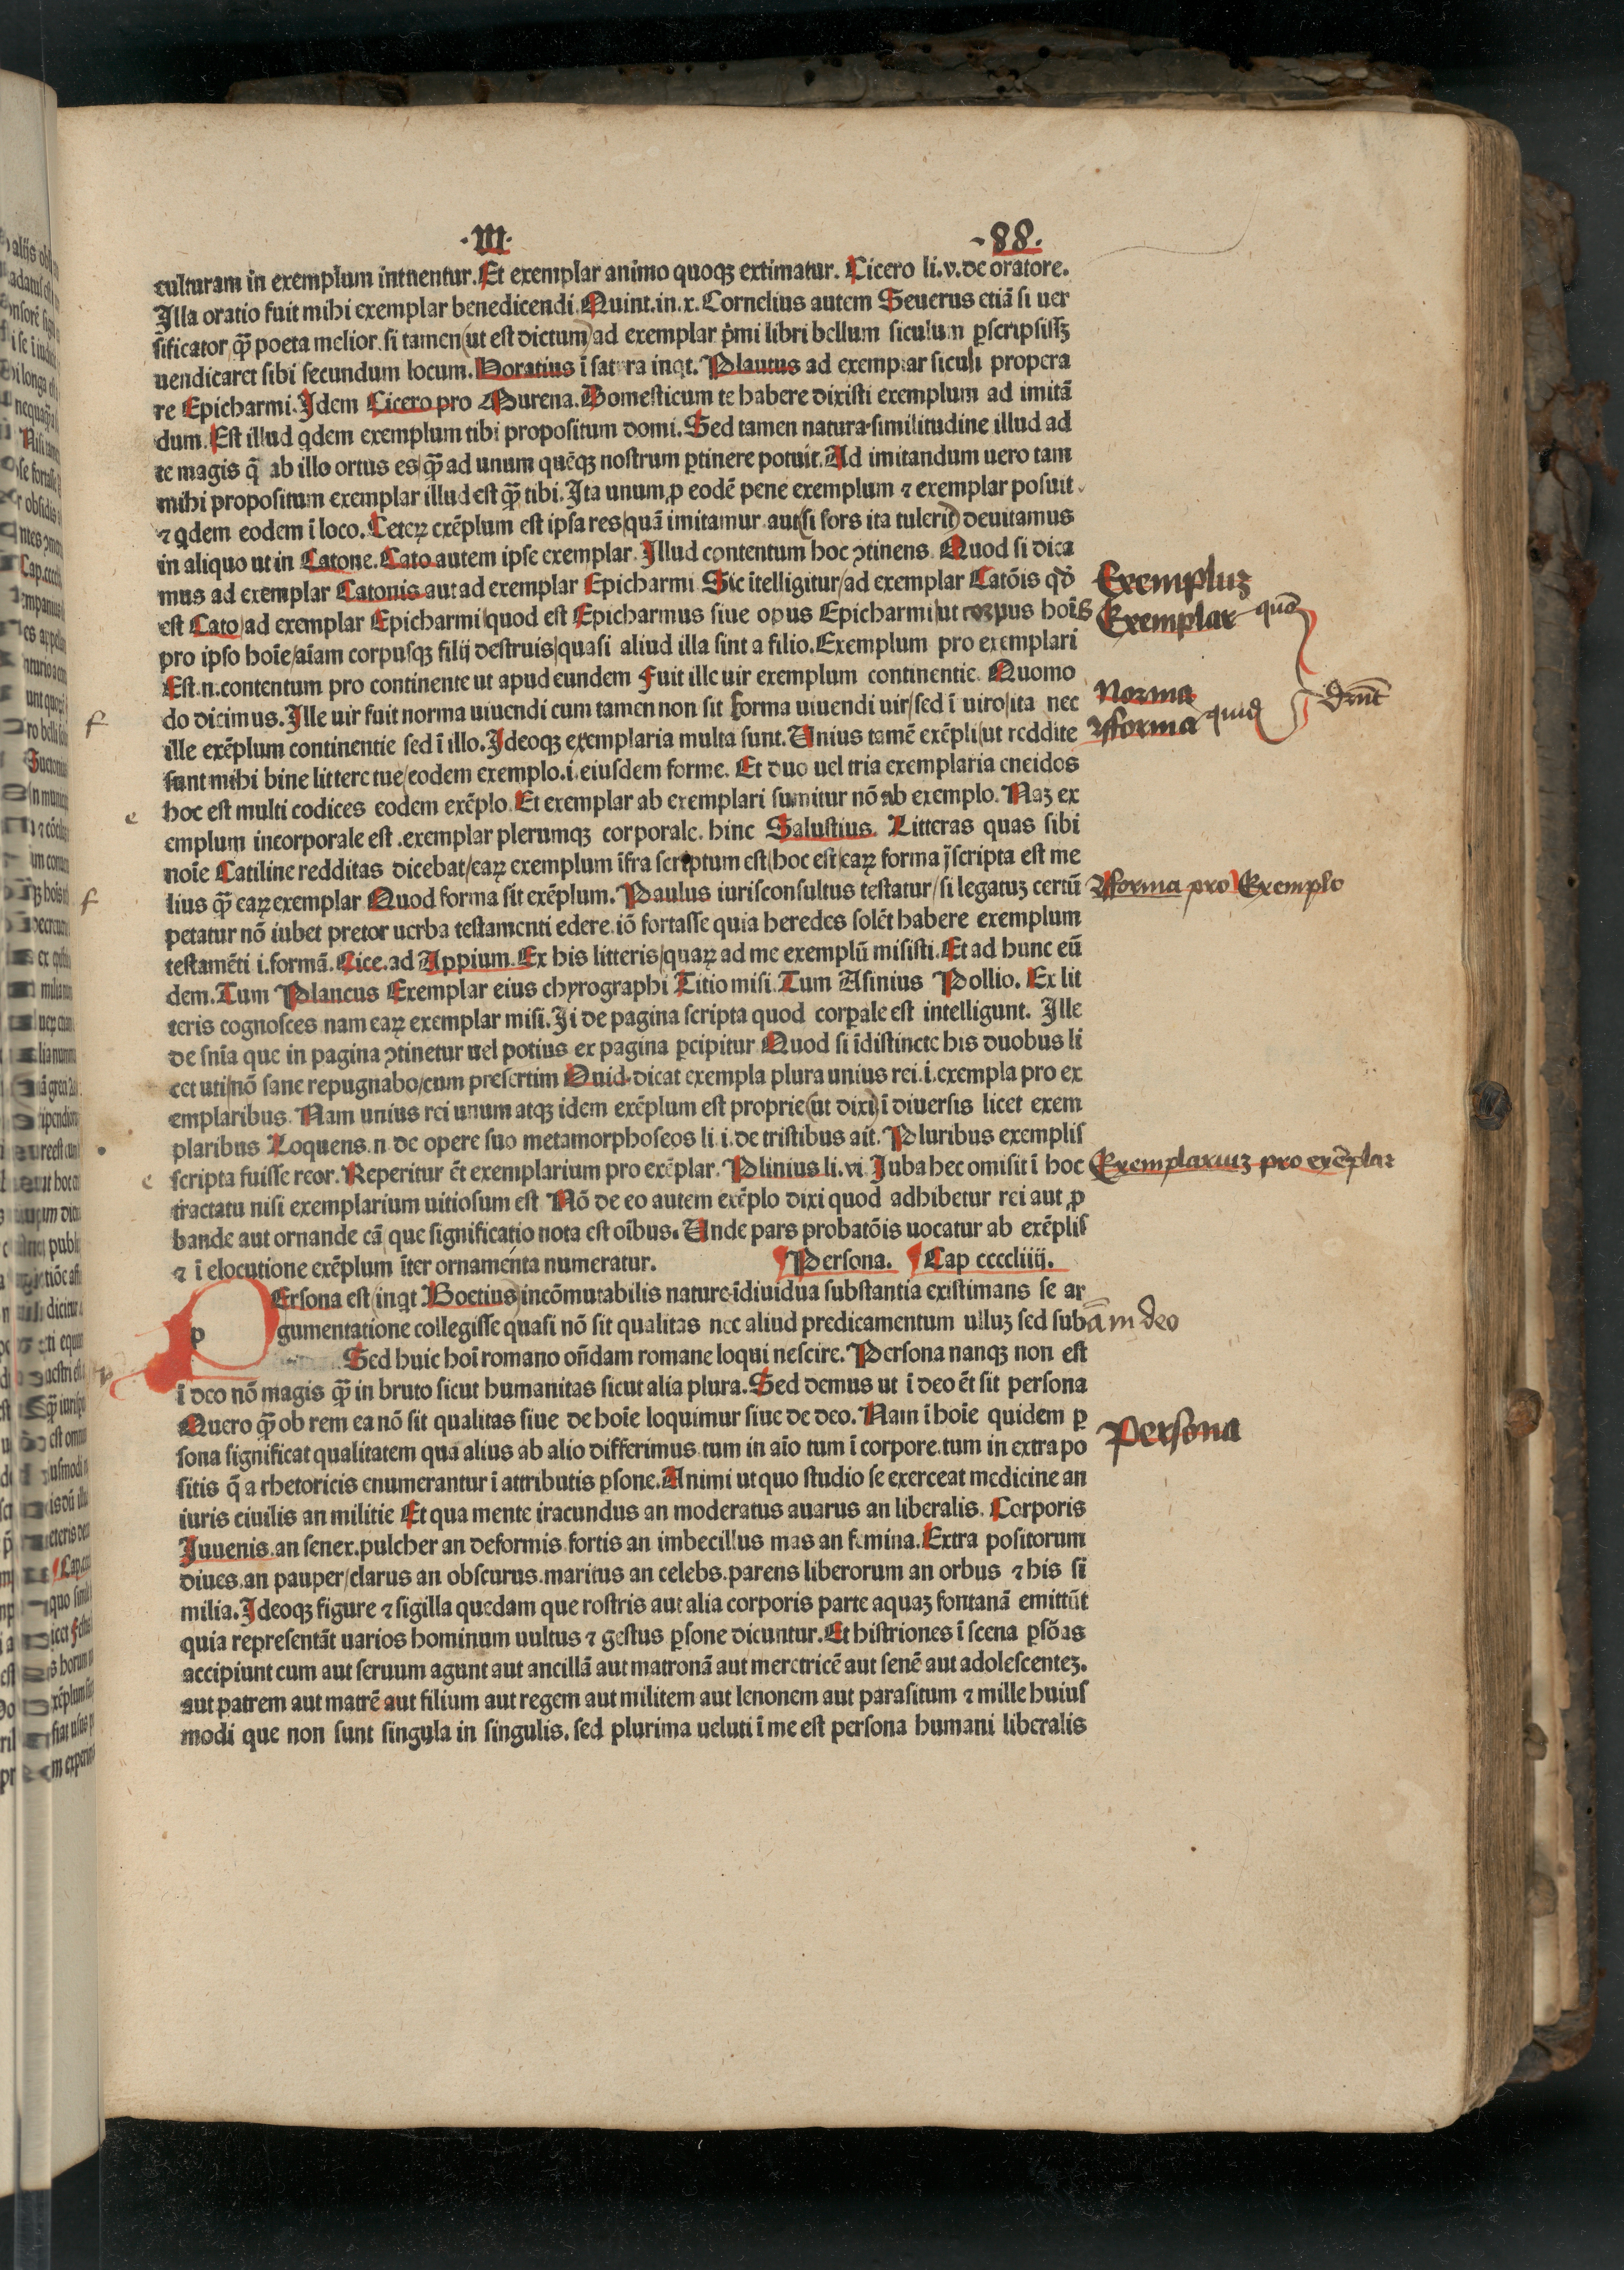 ·III· ·88·
culturam in exemplum intuentur. Et exemplar animo quoqꝫ extimatur. Cicero li.v.de oratore.
Illa oratio fuit mihi exemplar benedicendi. Quint.in.x. Cornelius autem Seuerus etiã si uer
sificator, q̃ꝫ poeta melior. si tamen (ut est dictum) ad exemplar p̃mi libri bellum siculum ꝑscripsissꝫ
uendicaret sibi secundum locum. Horatius ĩ satyra inqt. Plautus ad exemplar siculi propera
re Epicharmi. Idem Cicero pro Murena. Domesticum te habere dixisti exemplum ad imitã
dum. Est illud qdem exemplum tibi propositum domi. Sed tamen natura similitudine illud ad
te magis q̃ ab illo ortus es/ q̃ꝫ ad unum quẽqꝫ nostrum ꝑtinere potuit. Ad imitandum uero tam
mihi propositum exemplar illud est q̃ꝫ tibi. Ita unum, ꝓ eodẽ pene exemplum ⁊ exemplar posuit.
⁊ qdem eodem ĩ loco. Ceteꝝ exẽplum est ipsa res/ quã imitamur aut (si sors ita tulerit) deuitamus
in aliquo ut in Catone. Cato autem ipse exemplar. Illud contentum hoc ↄtinens. Quod si dica
mus ad exemplar Catonis aut ad exemplar Epicharmi. Sic ĩtelligitur/ ad exemplar Catõis qd̃
est Cato/ ad exemplar Epicharmi/ quod est Epicharmus siue opus Epicharmi/ ut corpus hoĩs
pro ipso hoĩe/ aĩam corpusqꝫ filij destruis/ quasi aliud illa sint a filio. Exemplum pro exemplari
Est.n.contentum pro continente ut apud eundem Fuit ille uir exemplum continentie. Quomo
do dicimus. Ille uir fuit norma uiuendi cum tamen non sit forma uiuendi uir/ sed ĩ uiro/ ita nec
ille exẽplum continentie sed ĩ illo. Ideoqꝫ exemplaria multa sunt. Unius tamẽ exẽpli/ ut reddite
sunt mihi bine littere tue/ eodem exemplo.i.eiusdem forme. Et duo uel tria exemplaria eneidos
hoc est multi codices eodem exẽplo. Et exemplar ab exemplari sumitur nõ ab exemplo. Naꝫ ex
emplum incorporale est .exemplar plerumqꝫ corporale. hinc Salustius. Litteras quas sibi
noĩe Catiline redditas dicebat/ eaꝝ exemplum ĩfra scriptum est/ hoc est/ eaꝝ forma ĩscripta est me
lius q̃ꝫ eaꝝ exemplar Quod forma sit exẽplum. Paulus iurisconsultus testatur/ si legatuꝫ certũ
petatur nõ iubet pretor uerba testamenti edere. iõ fortasse quia heredes solẽt habere exemplum
testamẽti i.formã. Cice.ad Appium. Ex his litteris/ quaꝝ ad me exemplũ misisti. Et ad hunc eũ
dem. Tum Plancus Exemplar eius chyrographi Titio misi. Tum Asinius Pollio. Ex lit
teris cognosces nam eaꝝ exemplar misi. Ii de pagina scripta quod corꝑale est intelligunt. Ille
de snĩa que in pagina ↄtinetur uel potius ex pagina ꝑcipitur Quod si ĩdistincte his duobus li
cet uti/ nõ sane repugnabo/ cum presertim Ouid. dicat exempla plura unius rei.i.exempla pro ex
emplaribus. Nam unius rei unum atqꝫ idem exẽplum est proprie (ut dixi) ĩ diuersis licet exem
plaribus Loquens.n.de opere suo metamorphoseos li.i.de tristibus ait. Pluribus exemplis
scripta fuisse reor. Reperitur ẽt exemplarium pro exẽplar. Plinius li.vi Iuba hec omisit ĩ hoc
tractatu nisi exemplarium uitiosum est Nõ de eo autem exẽplo dixi quod adhibetur rei aut ꝓ
bande aut ornande cã que significatio nota est oĩbus. Unde pars probatõis uocatur ab exẽplis
⁊ ĩ elocutione exẽplum ĩter ornamenta numeratur. Persona. Cap ccccliiij.
PErsona est (inqt Boetius) incõmutabilis nature ĩdiuidua substantia existimans se ar
gumentatione collegisse quasi nõ sit qualitas nec aliud predicamentum ulluꝫ sed sub
Sed huic hoĩ romano oñdam romane loqui nescire. Persona nanqꝫ non est
ĩ deo nõ magis q̃ꝫ in bruto sicut humanitas sicut alia plura. Sed demus ut ĩ deo ẽt sit persona
Quero q̃ꝫ ob rem ea nõ sit qualitas siue de hoĩe loquimur siue de deo. Nam ĩ hoĩe quidem ꝑ
sona significat qualitatem qua alius ab alio differimus tum in aĩo tum ĩ corpore. tum in extra po
sitis q̃ a rhetoricis enumerantur ĩ attributis ꝑsone. Animi ut quo studio se exerceat medicine an
iuris ciuilis an militie Et qua mente iracundus an moderatus auarus an liberalis. Corporis
Iuuenis an senex. pulcher an deformis fortis an imbecillus mas an femina. Extra positorum
diues. an pauper/ clarus an obscurus. maritus an celebs. parens liberorum an orbus ⁊ his si
milia. Ideoqꝫ figure ⁊ sigilla quedam que rostris aut alia corporis parte aquaꝫ fontanã emittũt
quia representãt uarios hominum uultus ⁊ gestus ꝑsone dicuntur. Et histriones ĩ scena ꝑsõas
accipiunt cum aut seruum agunt aut ancillã aut matronã aut meretricẽ aut senẽ aut adolescenteꝫ.
aut patrem aut matrẽ aut filium aut regem aut militem aut lenonem aut parasitum ⁊ mille huius
modi que non sunt singula in singulis. sed plurima ueluti ĩ me est persona humani liberalis
Exempluꝫ
Exemplar quõ
Norma
fforma quid
drñt
fforma pro Exemplo
Exemplariuꝫ pro exẽplar
ã in deo
Persona